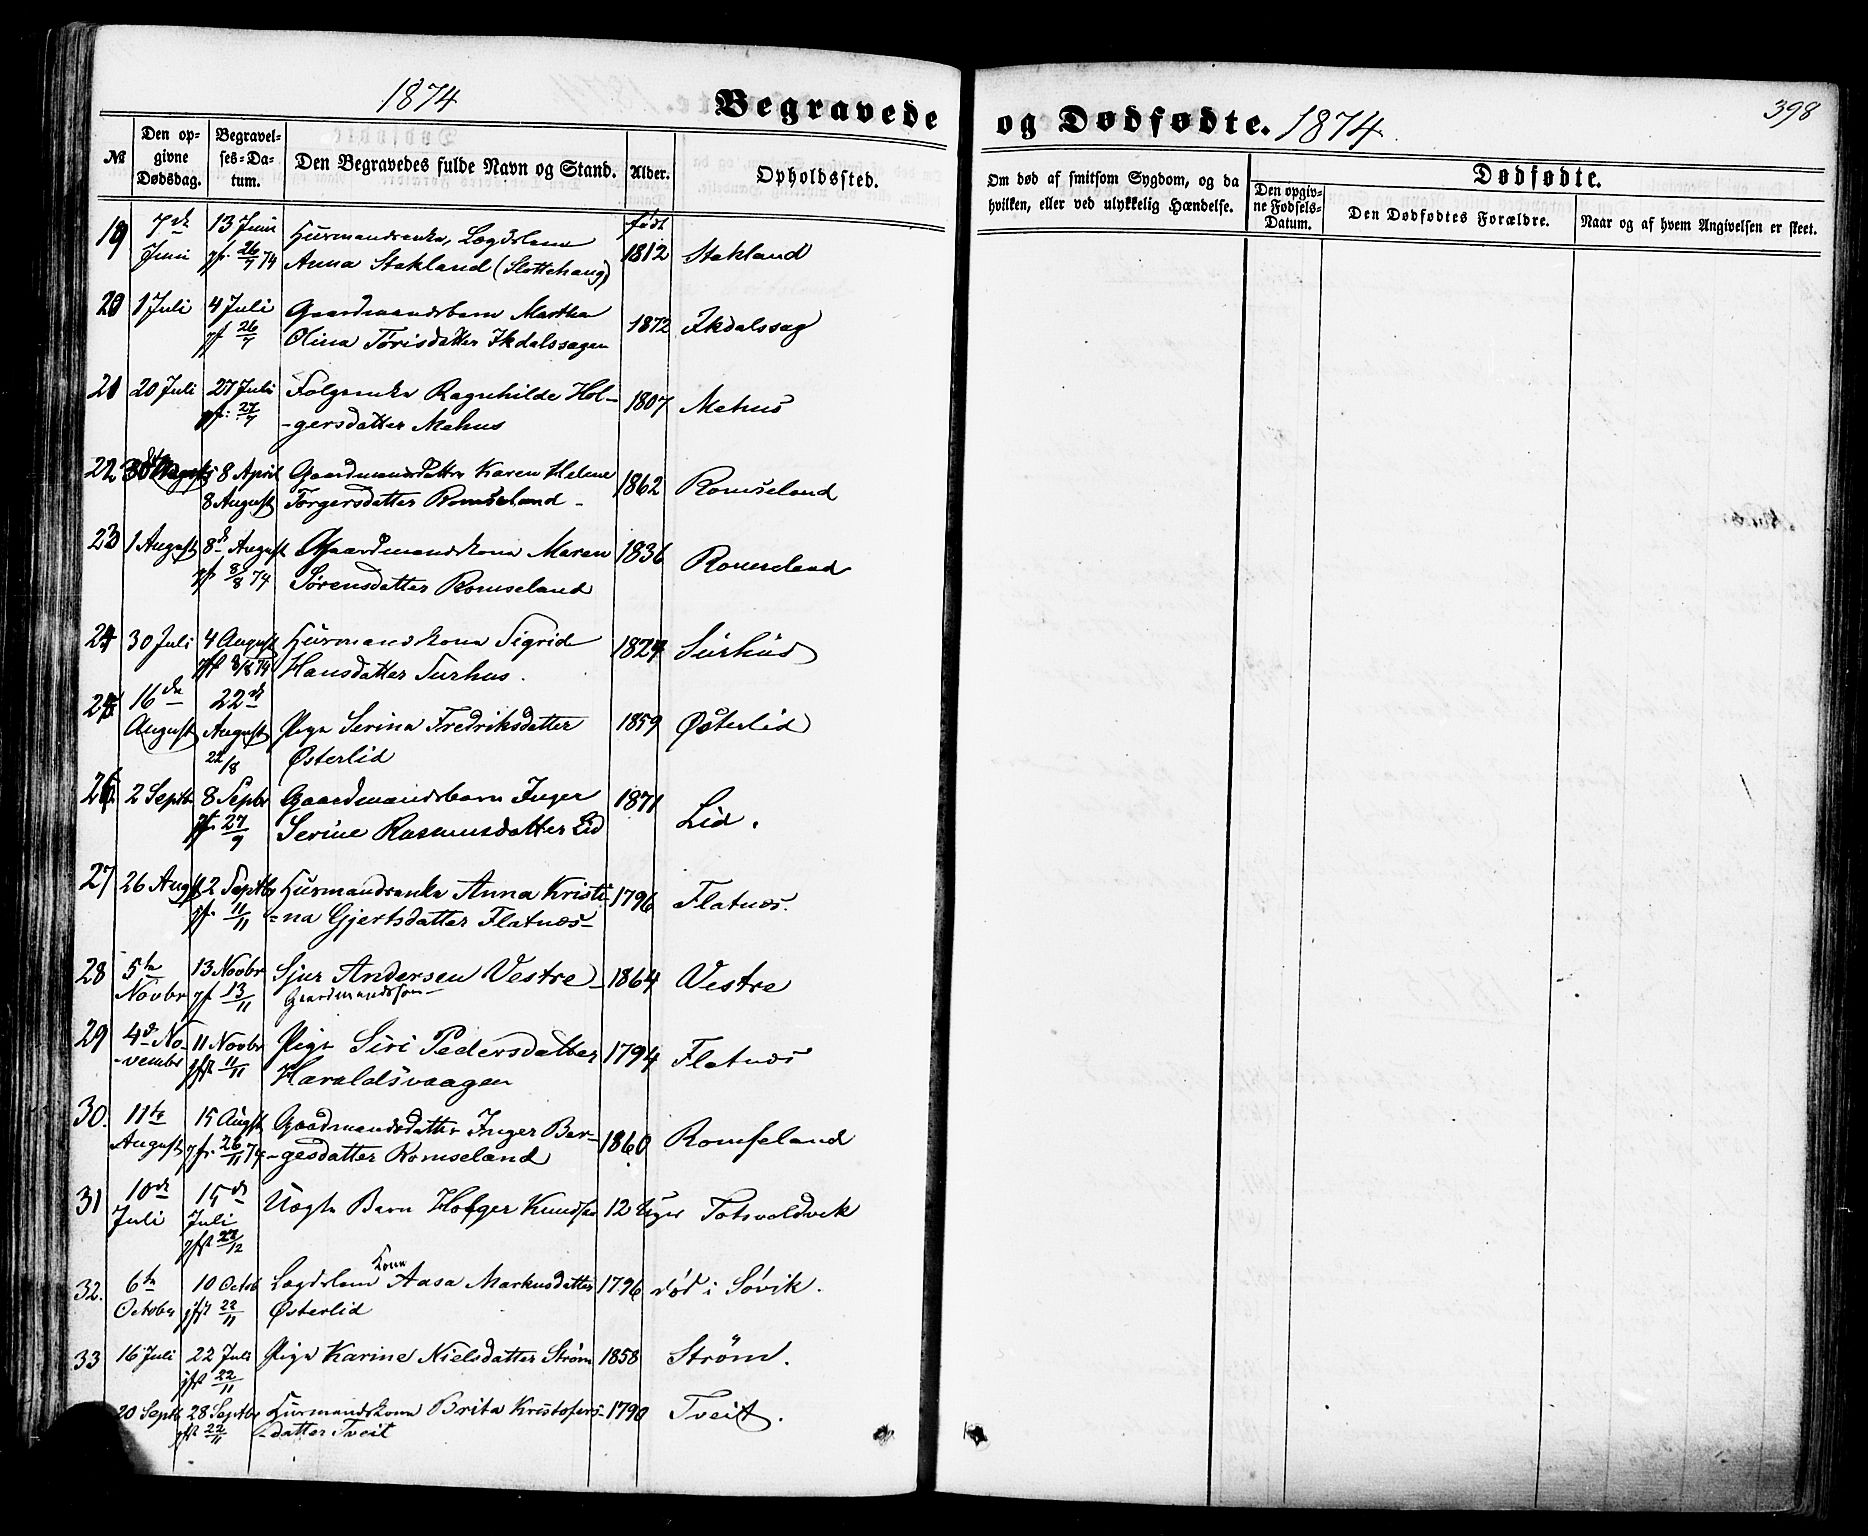 1874
Begravede
№
Den op-
givne
Dødsdag.
Begravel-
ses-Da-
tum.
Den Begravedes fulde Navn og Stand.
Alder.
Opholdssted.
19
7de
Juni
13 Juni
26/7 74
Husmandsenke, Lægdslem
Anna Stakland (Slottehaug)
født
1812
Stakland
20
1 Juli
4 Juli
26/7
Gaardmandsbarn Martha
Olina Torisdatter Ikdalssagen
1872
Ikdalssag
21
20 Juli
27 Juli
27/7
Folgeenke Ragnhilde Hol-
-gersdatter Mehus
1807
Mehus
22
8 April
8 August
Gaardmandsdatter Karen Helene
Torgersdatter Romseland -
1862
Romseland
23
1 August
8de August
8/8 74
Gaardmandskona Maren
Sørensdatter Romseland
1836
Romseland
24
30 Juli
4 August
8/8 74
Husmandskona Sigrid
Hansdatter Surhus.
1824
Surhus
25
16de
August
22de
August
22/8
Pige Serina Fredriksdatter
Østerlid
1859
Østerlid
26
2 Septb
8 Sepbr
27/9
Gaardmandsbarn Inger
Serine Rasmusdatter Lid
1871
Lid.
27
26 Augst
2 Septbr
11/11
Husmandsenke Anna Kristi-
=na Gjertsdatter Flatnæs-
1796
Flatnæs.
28
5te
Novbr
13 Novbr
13/11
Sjur Andersen Vestre-
Gaardmandssøn-
1864
Vestre
29
4de No-
-vembr
11 Novbr
11/11
Pige Siri Pedersdatter
Haraldsvaagen
1794
Flatnæs
30.
11te
August
15 Augst
26/11 74
Gaardmandsdatter Inger Bør-
-gesdatter Romseland
1860
Romseland
31
10de
Juli
15de
Juli
22/12
Uægte Barn Holger Knudsen
12 Uger
Totsvoldvik
32.
6te
October
10 Octob
22/11
Lægdslem Kona Aasa Markusdatter
Østerlid
1796
død i Søvik.
33
16 Juli
22 Juli
22/11
Pige Karine Nielsdatter Strøm
1858
Strøm.
20 Septb
28 Septbr
22/11
Husmandskona Brita Kristofers-
-datter Tveit
1790
Tveit.
og Dødfødte. 1874.
398
Om død af smitsom Sygdom, og da
hvilken, eller ved ulykkelig Hændelse.
Dødfødte.
Den opgiv-
ne Fødsels-
Datum.
Den Dødfødtes Forældre.
Naar og af hvem Angivelsen er skeet.